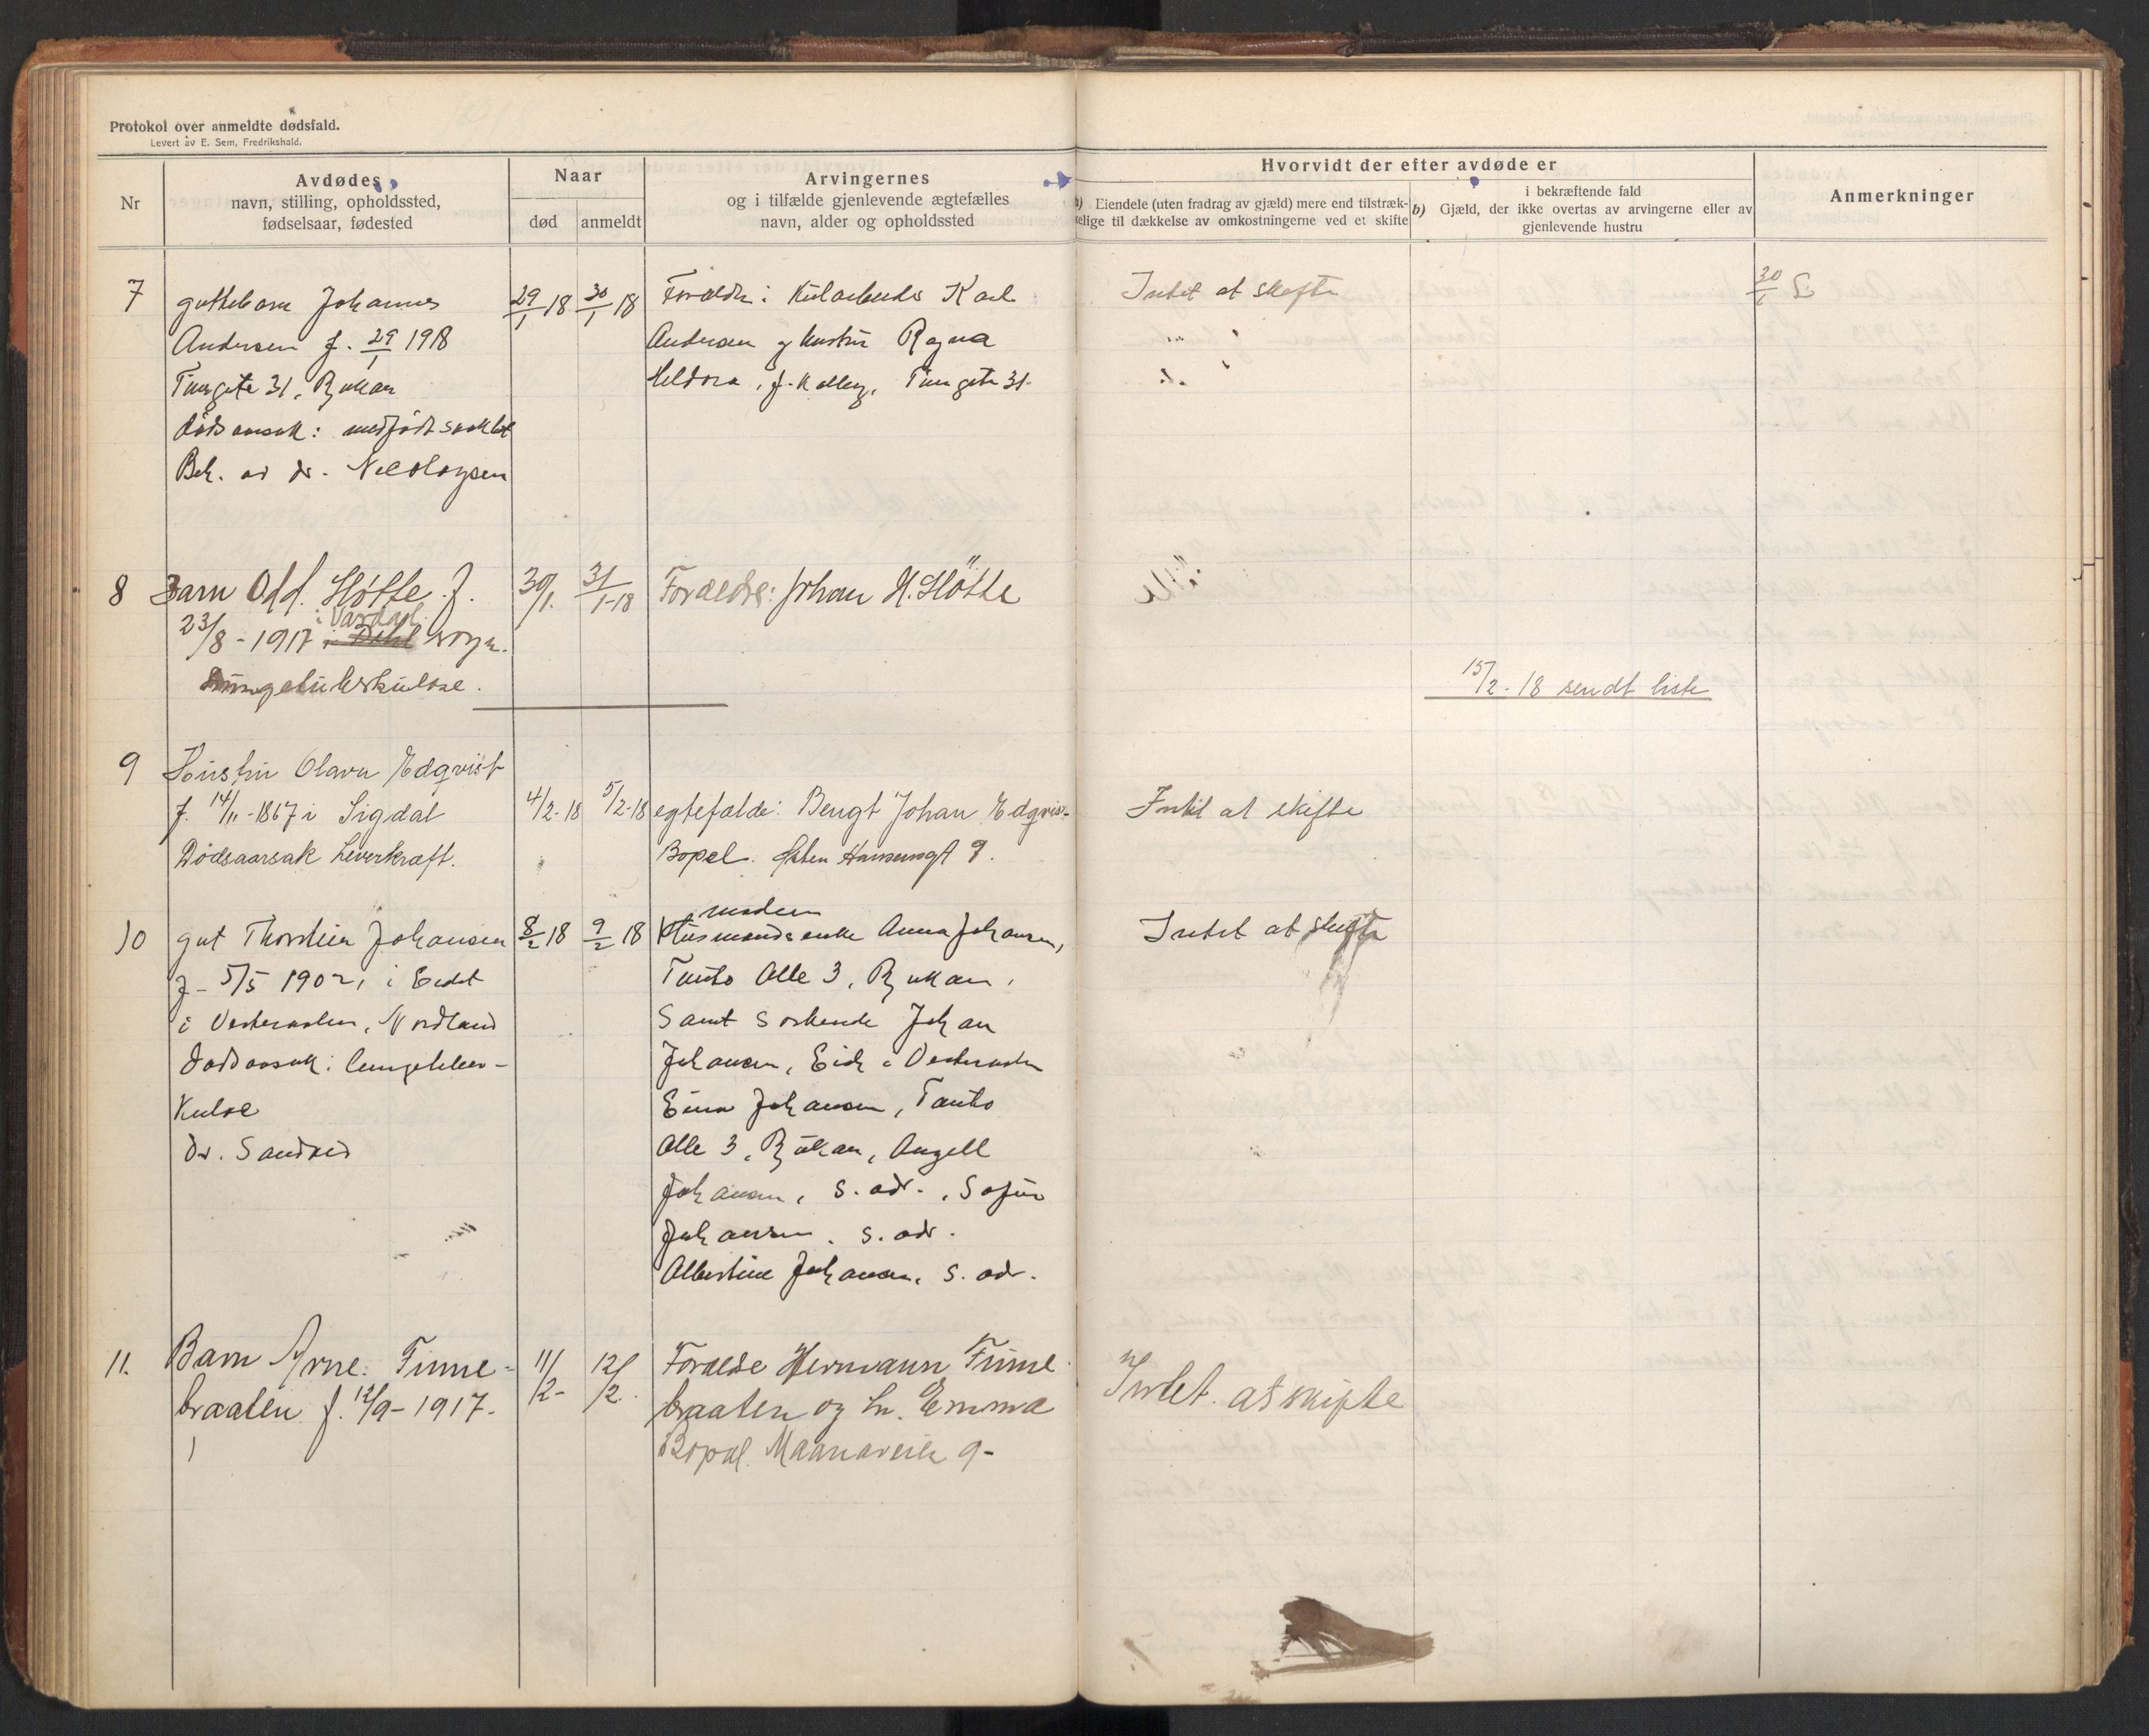 Protokol over anmeldte dødsfald.
Levert av E. Sem, Fredrikshald.
Nr
Avdødes
navn, stilling, opholdssted,
fødselsaar, fødested
Naar
død
anmeldt
Arvingernes
og i tilfælde gjenlevende ægtefælles
navn, alder og opholdssted
Hvorvidt der efter avdøde er
Eiendele (uten fradrag av gjæld) mere end tilstræk-
kelige til dækkelse av omkostningerne ved et skifte
b)
i bekræftende fald
Gjæld, der ikke overtas av arvingerne eller av
gjenlevende hustru
Anmerkninger
7
guttebarn Johannes
Andersen f. 29/1 1918
Tungata 31, Rjukan
dødsaarsak: medfødt svakhet
Beh. av dr. Nicolaysen
29/1 18
30/1 18
Forældre: Karl
Andersen og hustru Ragna
f. Tungata 31.
Intet at skifte
30/1
8
Barn Odd. Sløtte f.
23/8 - 1917 i Vardal sogn.
Lungetuberkulose.
30/1.
31/1-18
Forældre: Johan H. Sløtte
15/2-18 sendt liste
9
Hustru Olava Edqvist
f. 14/11-1867 i Sigdal
Dødsaarsak Leverkræft.
4/2-18
5/2-18
egtefælde: Bengt Johan Edqvist
Bopæl. Hansensgt 9.
Intet at skifte
10
gut Thorstein Johansen
f. 5/5 1902, i Eidet
i Vesteraalen, Nordland
dødsaarsak: lungetuber-
kulose
dr. Sandved
8/2 18
9/2 18
moderen
Husmandsenke Anna Johansen,
Alle 3, Rjukan,
samt søskende Johan
Johansen, Eide i Vesteraalen
Johansen,
Alle 3, Rjukan, Angell
Johansen, s. adr., Sofie
Johansen. s. adr.
Albertine Johansen, s. adr.
Intet at skifte
11.
Barn Arne. Finne-
braaten f. 12/9-1917.
11/2-
12/2.
Forælde Hermann Finne
braaten og h. Emma
Bopæl. Maanaveien 9-
Intet. at skifte